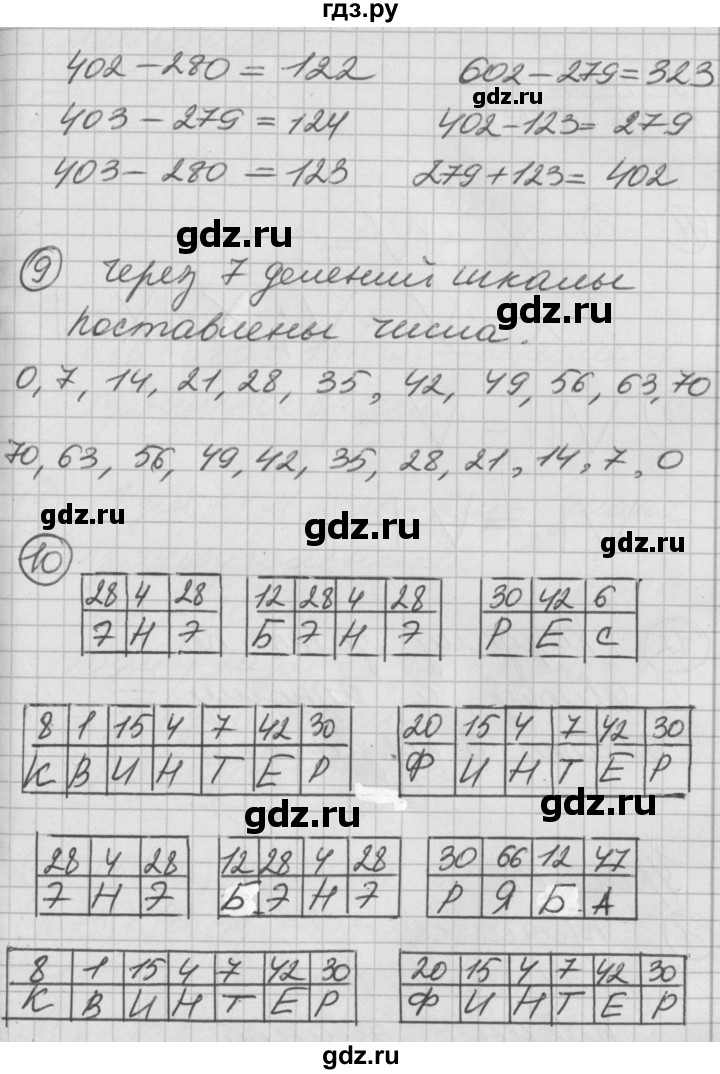 гдз.ру
402 - 280 = 122 602 - 279 = 323
gdz.ru
403 - 279 = 124 402 - 123 = 279
403 - 280 = 123 279 + 123 = 402
gdz.ru
9 через 7 делений шкалы
gdz.ru
поставлены числа.
gdz.ru
0, 7, 14, 21, 28, 35, 42, 49, 56, 63, 70
70, 63, 56, 49, 42, 35, 28, 21, 14, 7, 0
gdz.ru gdz.ru
10 gdz.ru
28 4 28 12 28 4 28 30 42 6
Э Н Э Б Э Н Э Р Е С
8 1 15 4 7 42 30 20 15 4 7 42 30
К В И Н Т Е Р Ф И Н Т Е Р
gdz.ru gdz.ru
28 4 28 12 28 4 28 30 66 12 47
Э Н Э Б Э Н Э Р Я Б А
8 1 15 4 7 42 30 20 15 4 7 42 30
gdz.ru gdz.ru
К В И Н Т Е Р Ф И Н Т Е Р
gdz.ru